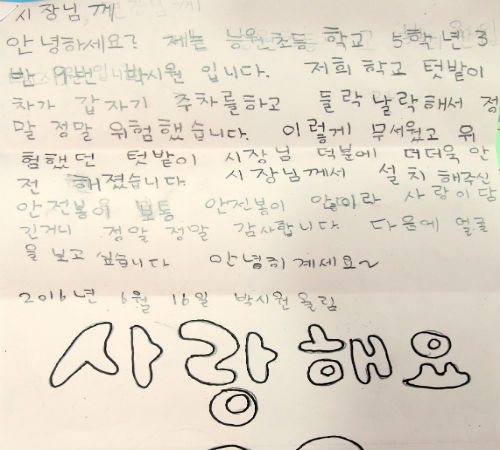 시장님께
안녕하세요? 저는 능원초등 학교 5학년 3
반 9번 박시원 입니다. 저희 학교 텃밭이
차가 갑자기 주차를하고 들락 날락해서 정
말 정말 위험했습니다. 이렇게 무서웠고 위
험했던 텃밭이 시장님 덕분에 더더욱 안
전 해졌습니다. 시장님께서 설치 해주신
안전봉이 보통 안전봉이 아니라 사랑이 담
긴거니 정말 정말 감사합니다. 다음에 얼굴
을 보고 싶습니다 안녕히 계세요~
2016년 6월 16일 박시원 올림
사랑해요